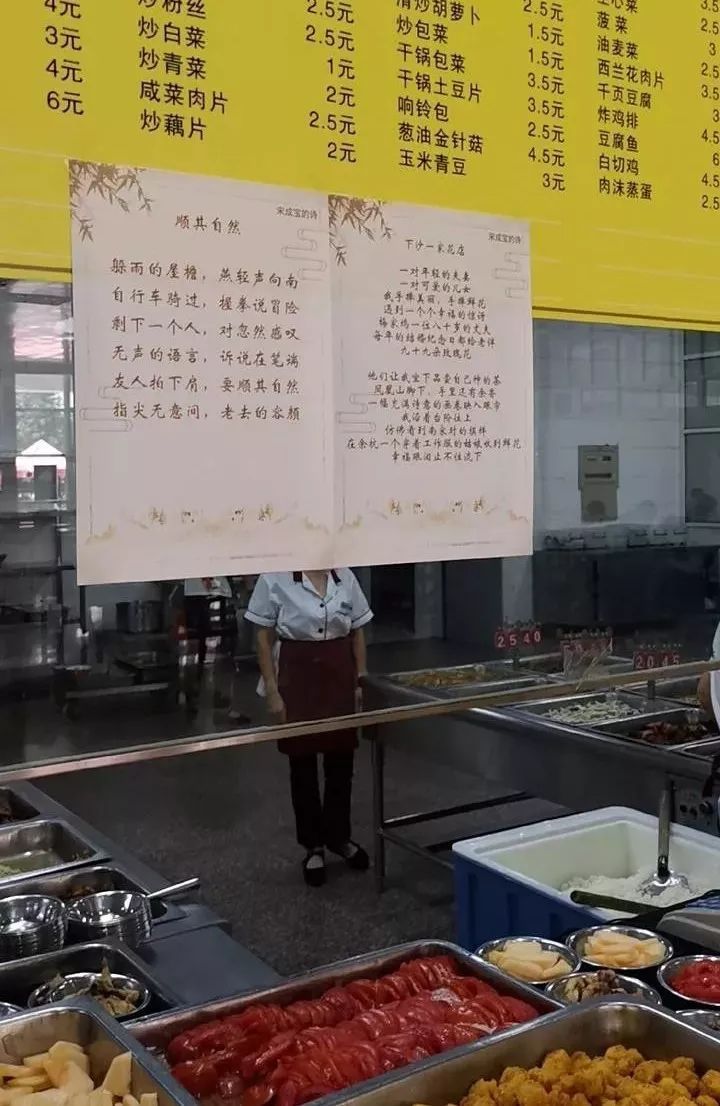 4元
3元
4元
6元
炒粉丝
炒白菜
炒青菜
咸菜肉片
炒藕片
2.5元
2.5元
1元
2元
2.5元
2元
清炒胡萝卜
炒包菜
干锅包菜
干锅土豆片
响铃包
葱油金针菇
玉米青豆
2.5元
1.5元
1.5元
3.5元
3.5元
2.5元
4.5元
3元
菠菜
油麦菜
西兰花肉片
千页豆腐
炸鸡排
豆腐鱼
白切鸡
肉沫蒸蛋
3.5
2.5
3
2.5
3.5
3
6
4.5
2.5
宋成宝的诗
顺其自然
躲雨的屋檐，燕轻声向南
自行车骑过，握拳说冒险
剩下一个人，对忽然感叹
无声的语言，诉说在笔端
友人拍下肩，要顺其自然
指尖无意间，老去的容颜
宋成宝的诗
下沙一家花店
一对年轻的夫妻
一对可爱的儿女
我手捧美丽，手捧鲜花
遇到一个个幸福的惊讶
杨家坞一位八十岁的丈夫
每年的结婚纪念日都给老伴
九十九朵玫瑰花
他们让我坐下品尝自己种的茶
凤凰山脚下，手里还有余香
一幅充满诗意的画卷映入眼帘
我沿着台阶往上
仿佛看到南宋时的模样
在余杭一个穿着工作服的姑娘收到鲜花
幸福眼泪止不住流下
2540
2045